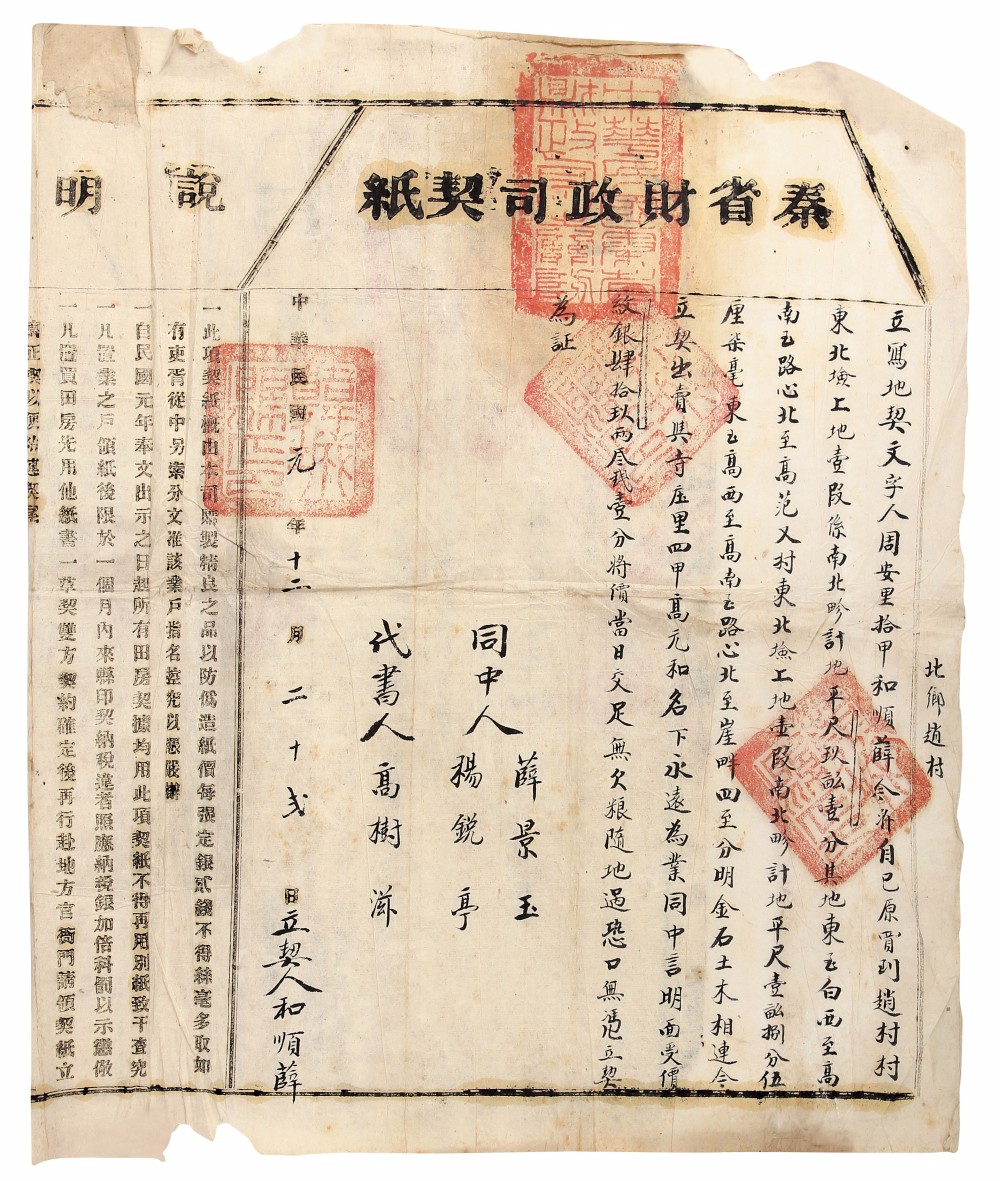 秦省財政司契紙
北鄉趙村
立寫地契文字人周安里拾甲和順薛今將自已原買到趙村村
東北墶上地壹叚係南北畛計地平尺玖畝壹分其地東至白西至高
南至路心北至高范又村東北墶上地壹叚南北畛計地平尺壹畝捌分伍
厘柒毫東至高西至高南至路心北至崖畔四至分明金石土木相連今
立契出賣與寺庄里四甲高元和名下永遠為業同中言明面受價
紋銀肆拾玖兩叁錢壹分將價當日交足無欠粮隨地過恐口無憑立契
為証
同中人 薛景玉
楊銳亭
代書人 高樹滋
中華民國元年十二月二十弍日立契人和順薛
說明
一此項契紙概由本司監製精良之品以防偽造紙價每張定銀貳錢不得絲毫多取如
有吏胥從中另索分文准該業戶指名控究以懲嚴辦
一自民國元年奉文出示之日起所有田房契據均用此項契紙不得再用別紙致干查究
一凡置業之戶領紙後限於一個月內來縣印契納稅違者照應納稅銀加倍科罰以示懲儆
一凡置買田房先用他紙書一草契雙方契約確定後再行赴地方官衙門請領契紙立